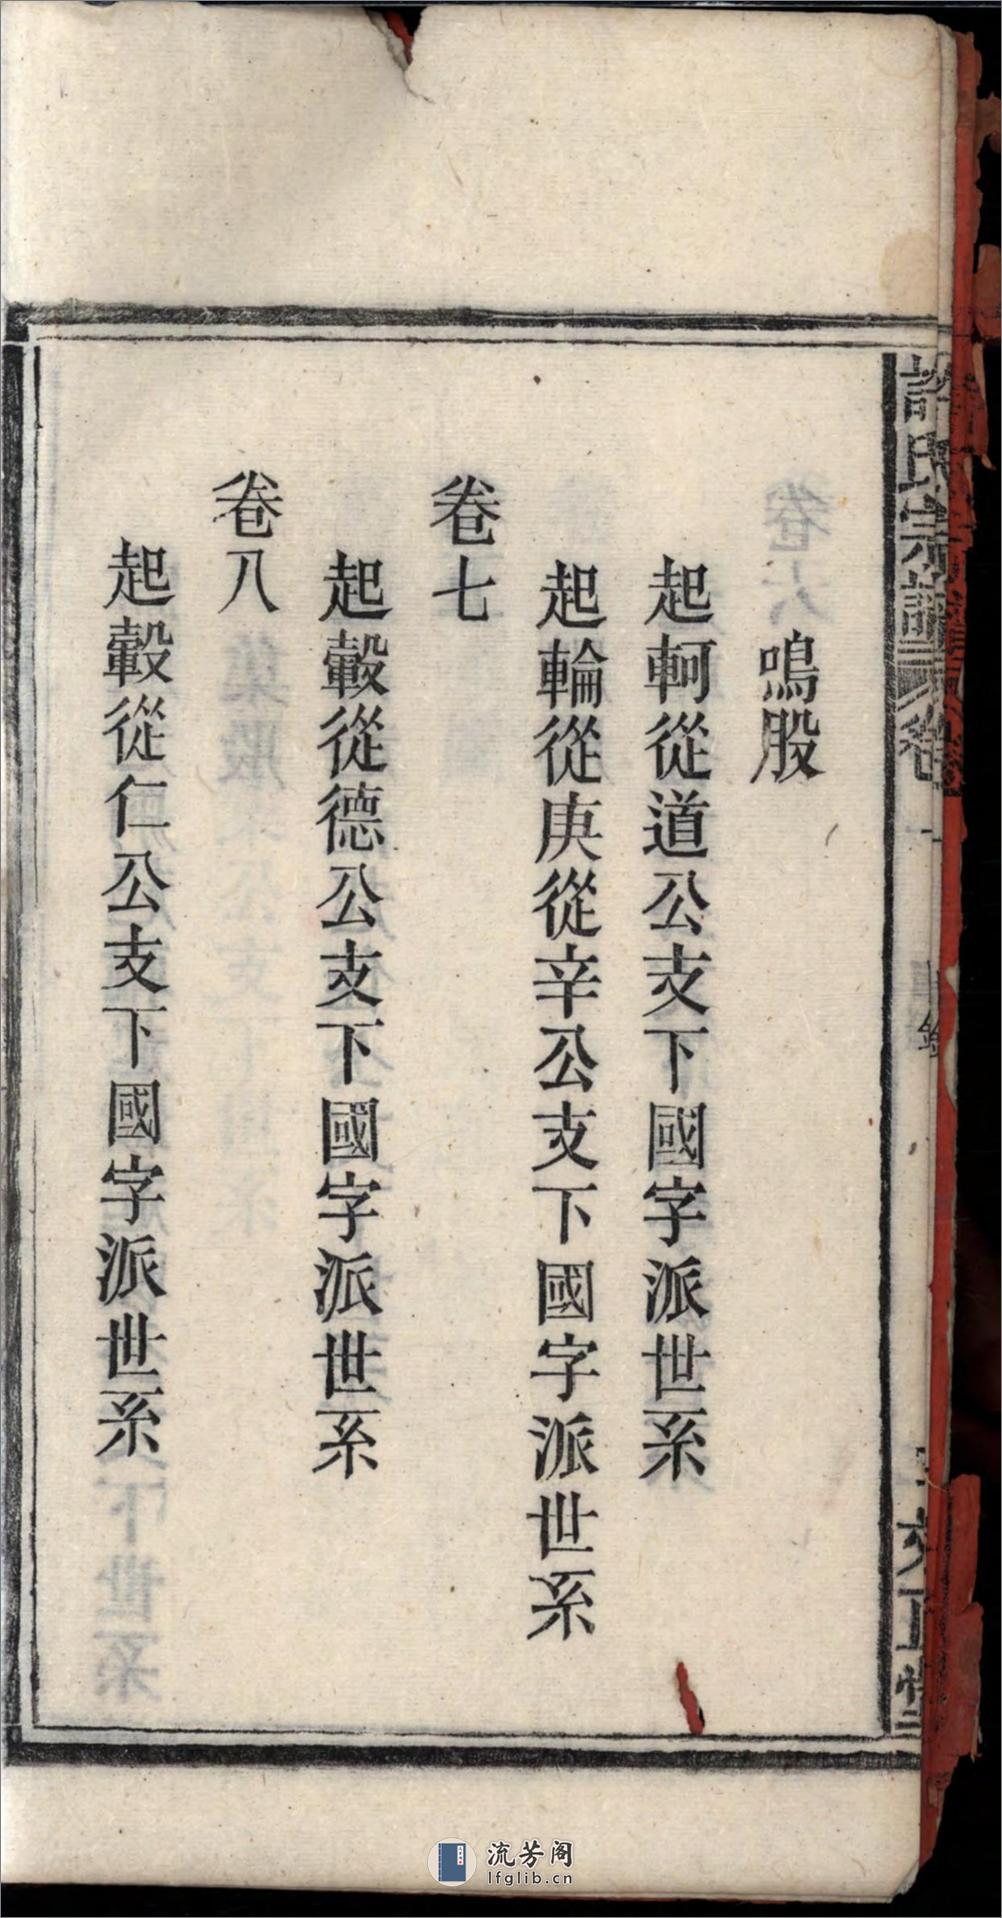 許氏宗譜 卷
鳴股
起軻從道公支下國字派世系
起輪從庚從辛公支下國字派世系
卷七
起轂從德公支下國字派世系
卷八
起轂從仁公支下國字派世系
流芳阁
lfglib.cn